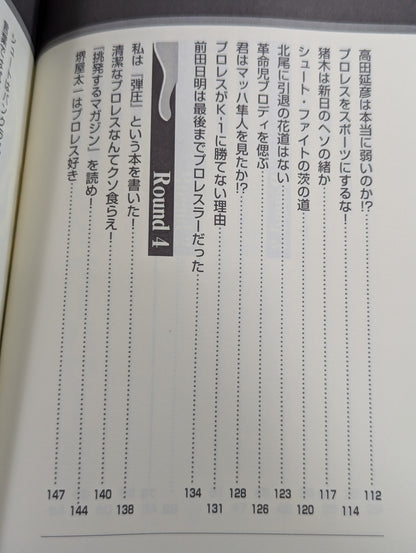 高田延彦は本当に弱いのか!?……112
プロレスをスポーツにするな!……114
猪木は新日のヘソの緒か……117
シュート・ファイトの茨の道……120
北尾に引退の花道はない……123
革命児ブロディを偲ぶ……126
君はマッハ隼人を見たか!?……128
プロレスがK-1に勝てない理由……131
前田日明は最後までプロレスラーだった……134
Round 4
私は『弾圧』という本を書いた!……138
清潔なプロレスなんてクソ食らえ!……140
『挑発するマガジン』を読め!……144
堺屋太一はプロレス好き……147